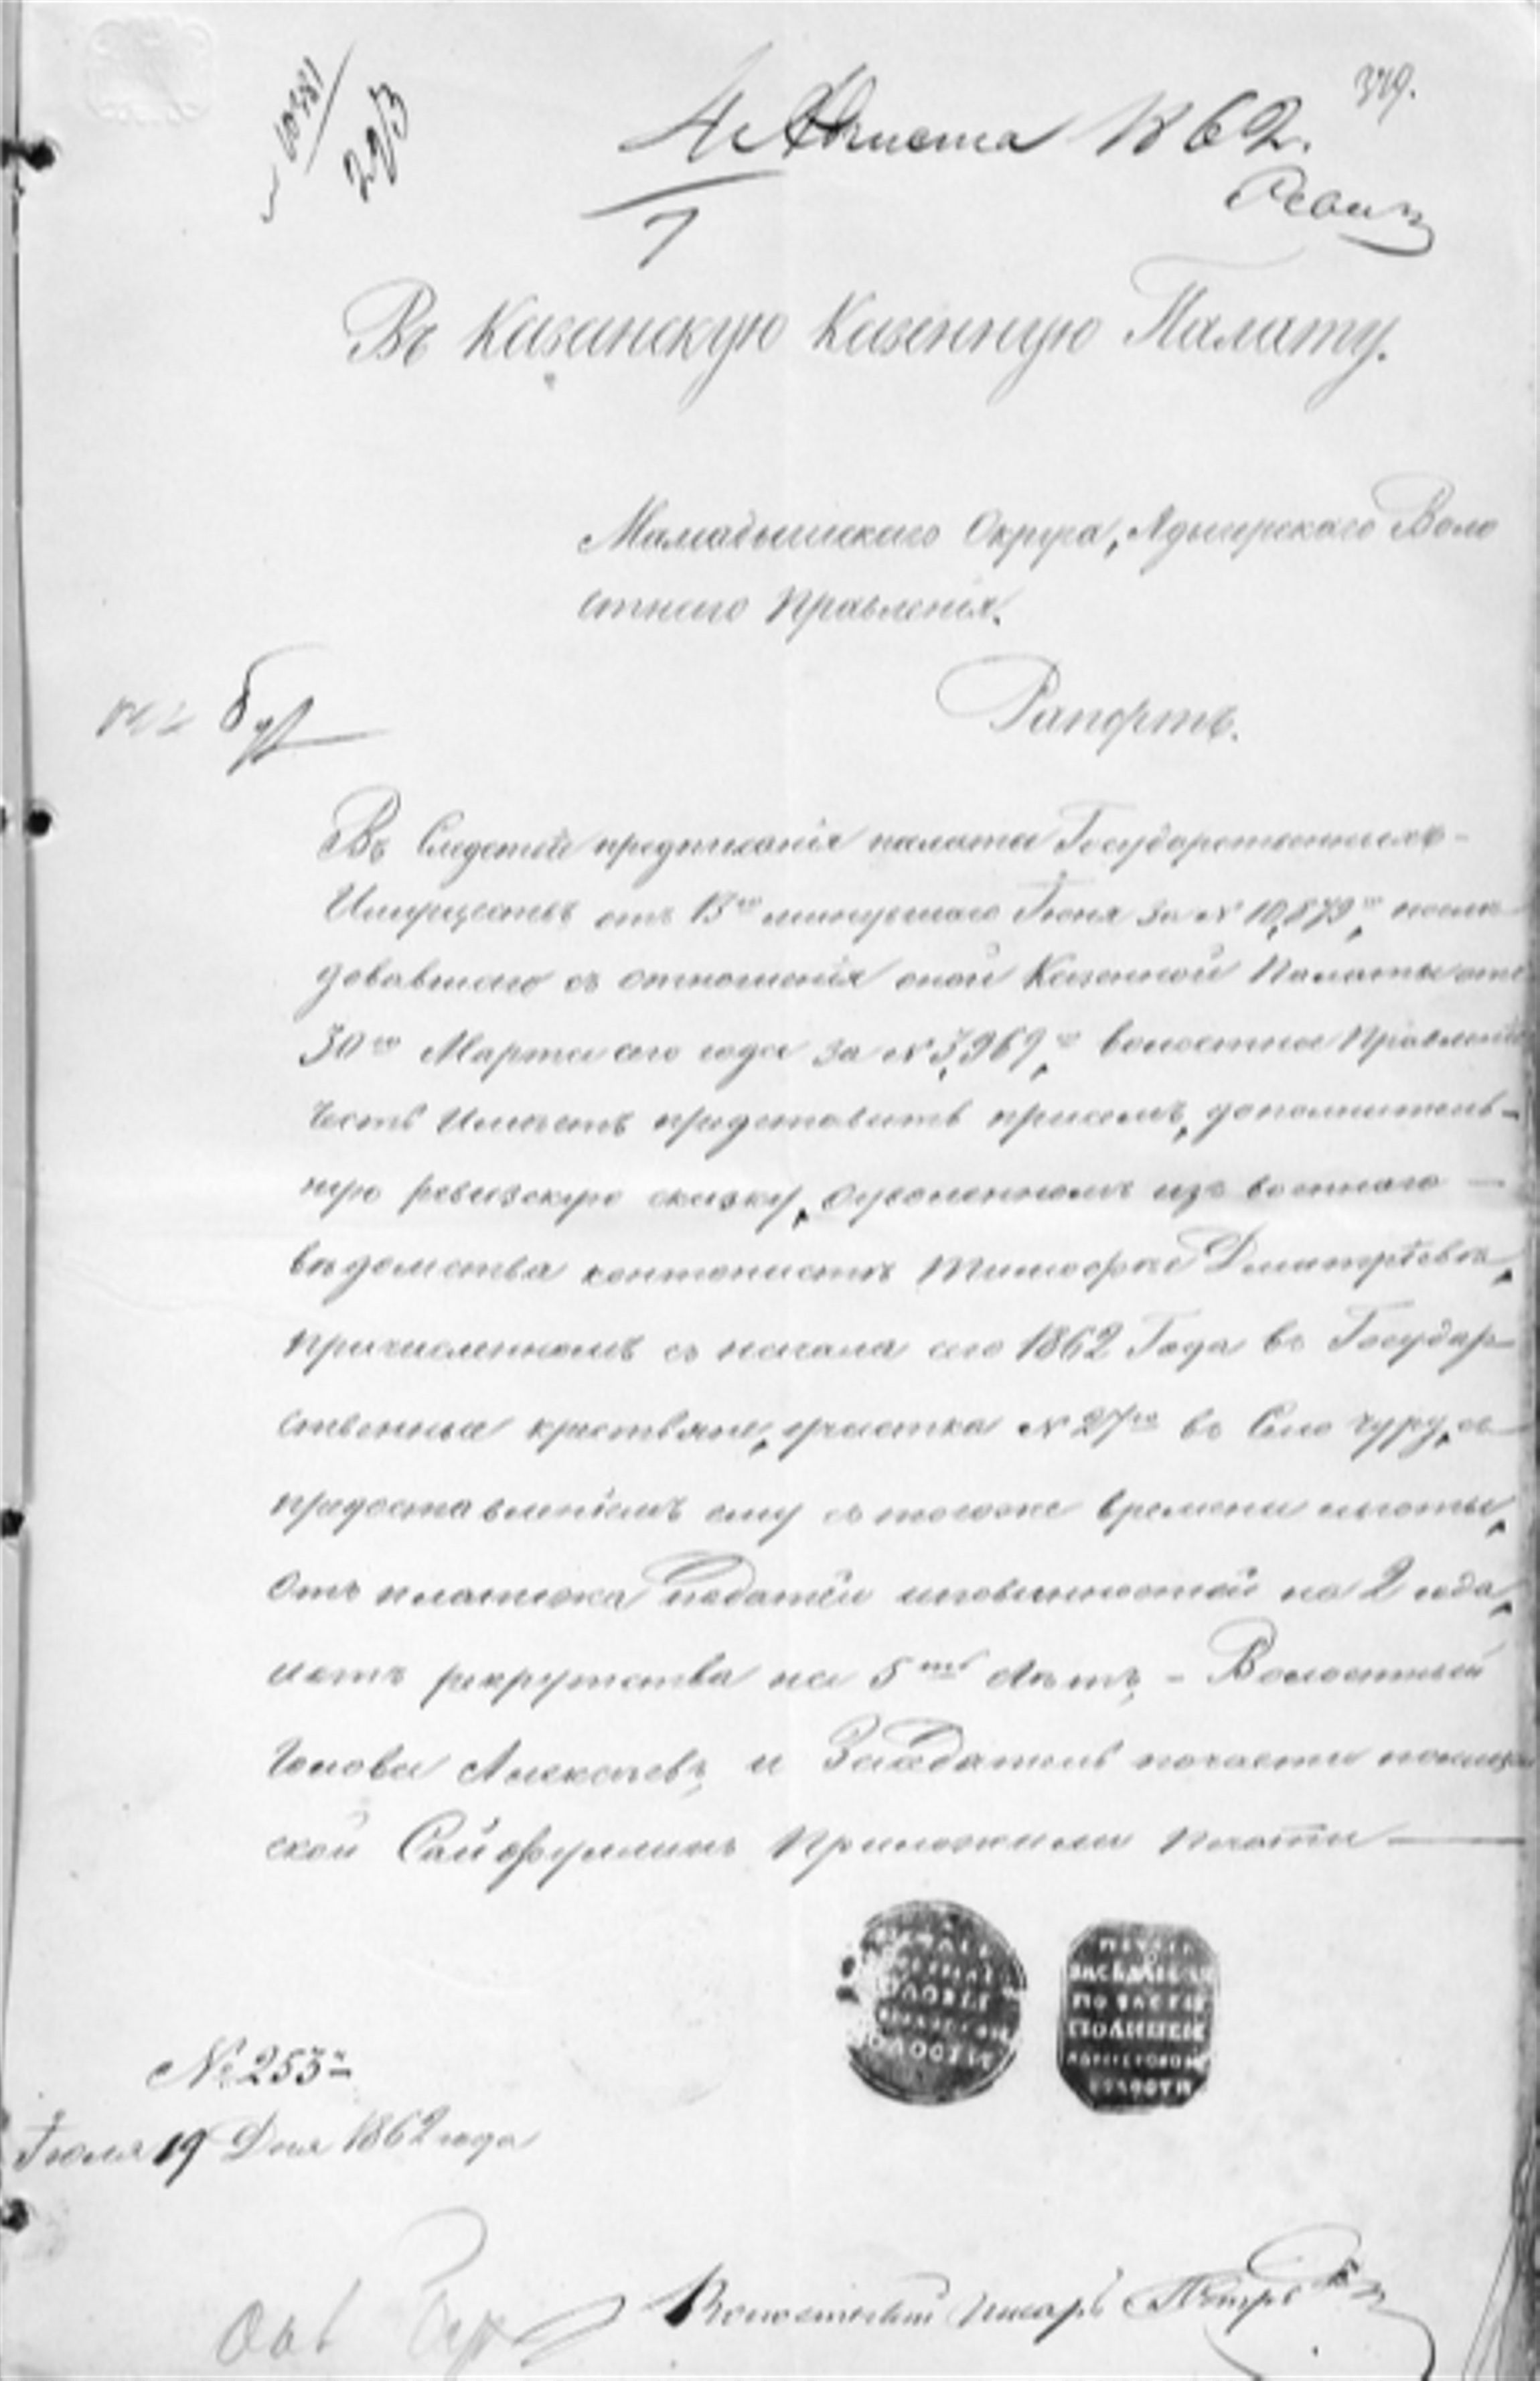 379.
4 Августа 1862.
Ревиз
7
Въ Казанскую Казенную Палату.
Мамадышскаго Округа, Воло
стнаго Правленія.
Рапортъ.
Въ Следствіе предписанія палаты Государственныхъ
Имуществъ отъ 13го минувшаго Іюня за № 10,879м, после
довавшаго съ отношенія оной Казенной Палаты отъ
30го Марта сего года за № 3,969м волостное Правленіе
Честь Имеетъ представить присемъ, дополнитель-
ную ревизскую сказку, Оуволенномъ изъ военнаго
ведомства кантонисте Тимофее Дмитріеве,
Причисленномъ съ начала сего 1862 Года въ Государ
ственные крестьяне, участка № 27го въ Село Чуру, съ
предоставленіемъ ему съ тогоже времени льготы,
Отъ платежа податей иповинностей на 2 года,
иотъ рекрутства на 5ть Летъ, - Волостный
Голова Алексеевъ, и Заседатель почасти полицей
ской Сайфуллинъ Приложили Печати
ПЕЧАТЬ
ЗАСЕДАТЕЛЯ
ПО ЧАСТИ
ПОЛИЦЕЙ
ВОЛОСТИ
№ 253й
Іюля 19 Дня 1862 года
Волостный Писарь Петръ